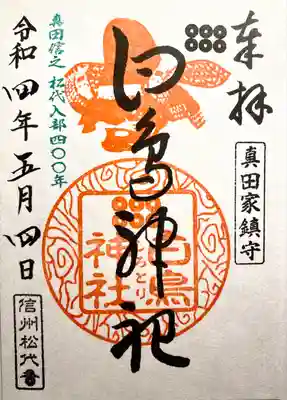 奉拝
真田家鎮守
白鳥神社
白鳥
神社
真田信之 松代入部四〇〇年
令和四年五月四日
信州松代